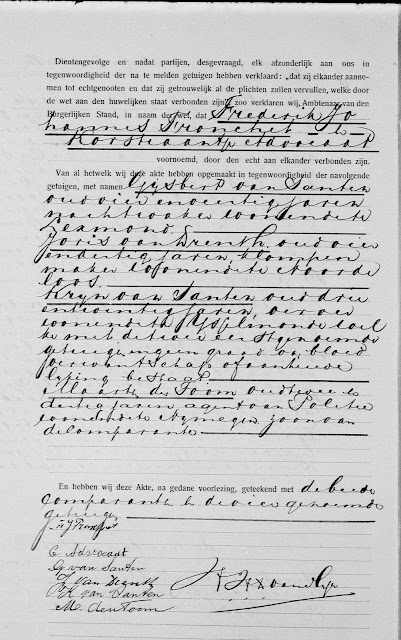 Dientengevolge en nadat partijen, desgevraagd, elk afzonderlijk aan ons in
tegenwoordigheid der na te melden getuigen hebben verklaard: „dat zij elkander aanne-
men tot echtgenooten en dat zij getrouwelijk al de plichten zullen vervullen, welke door
de wet aan den huwelijken staat verbonden zijn", zoo verklaren wij, Ambtenaar van den
Burgerlijken Stand, in naam der wet, dat Frederik Jo
hannes Tronchet en
Korstiaantje Advocaat
voornoemd, door den echt aan elkander verbonden zijn.
Van al hetwelk wij deze akte hebben opgemaakt in tegenwoordigheid der navolgende
getuigen, met namen Gijsbert van Santen
oud vier en veertig jaren
nachtwaker wonende te
IJselmonde
Joris van Drenth, oud vier
en dertig jaren, klompen
maker wonende te
Krijn van Santen oud drie
en twintig jaren,
wonende te IJsselmonde
ke met de
getuigen in geen graad van bloed
verwantschap of aanhuwe
lijking bestaat
Maarten den Toom oud twee en
dertig jaren agent van Politie
wonende te Nijmegen zoon van
de comparante
En hebben wij deze Akte, na gedane voorlezing, geteekend met de beide
comparanten en de vier genoemde
getuigen
F J Tronchet
C Advocaat
G van Santen
J van Drenth
K van Santen
M. den Toom